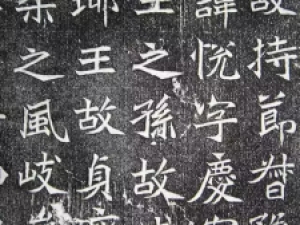 故持節督
諱悅字慶
王之孫故
王故貞
之風岐